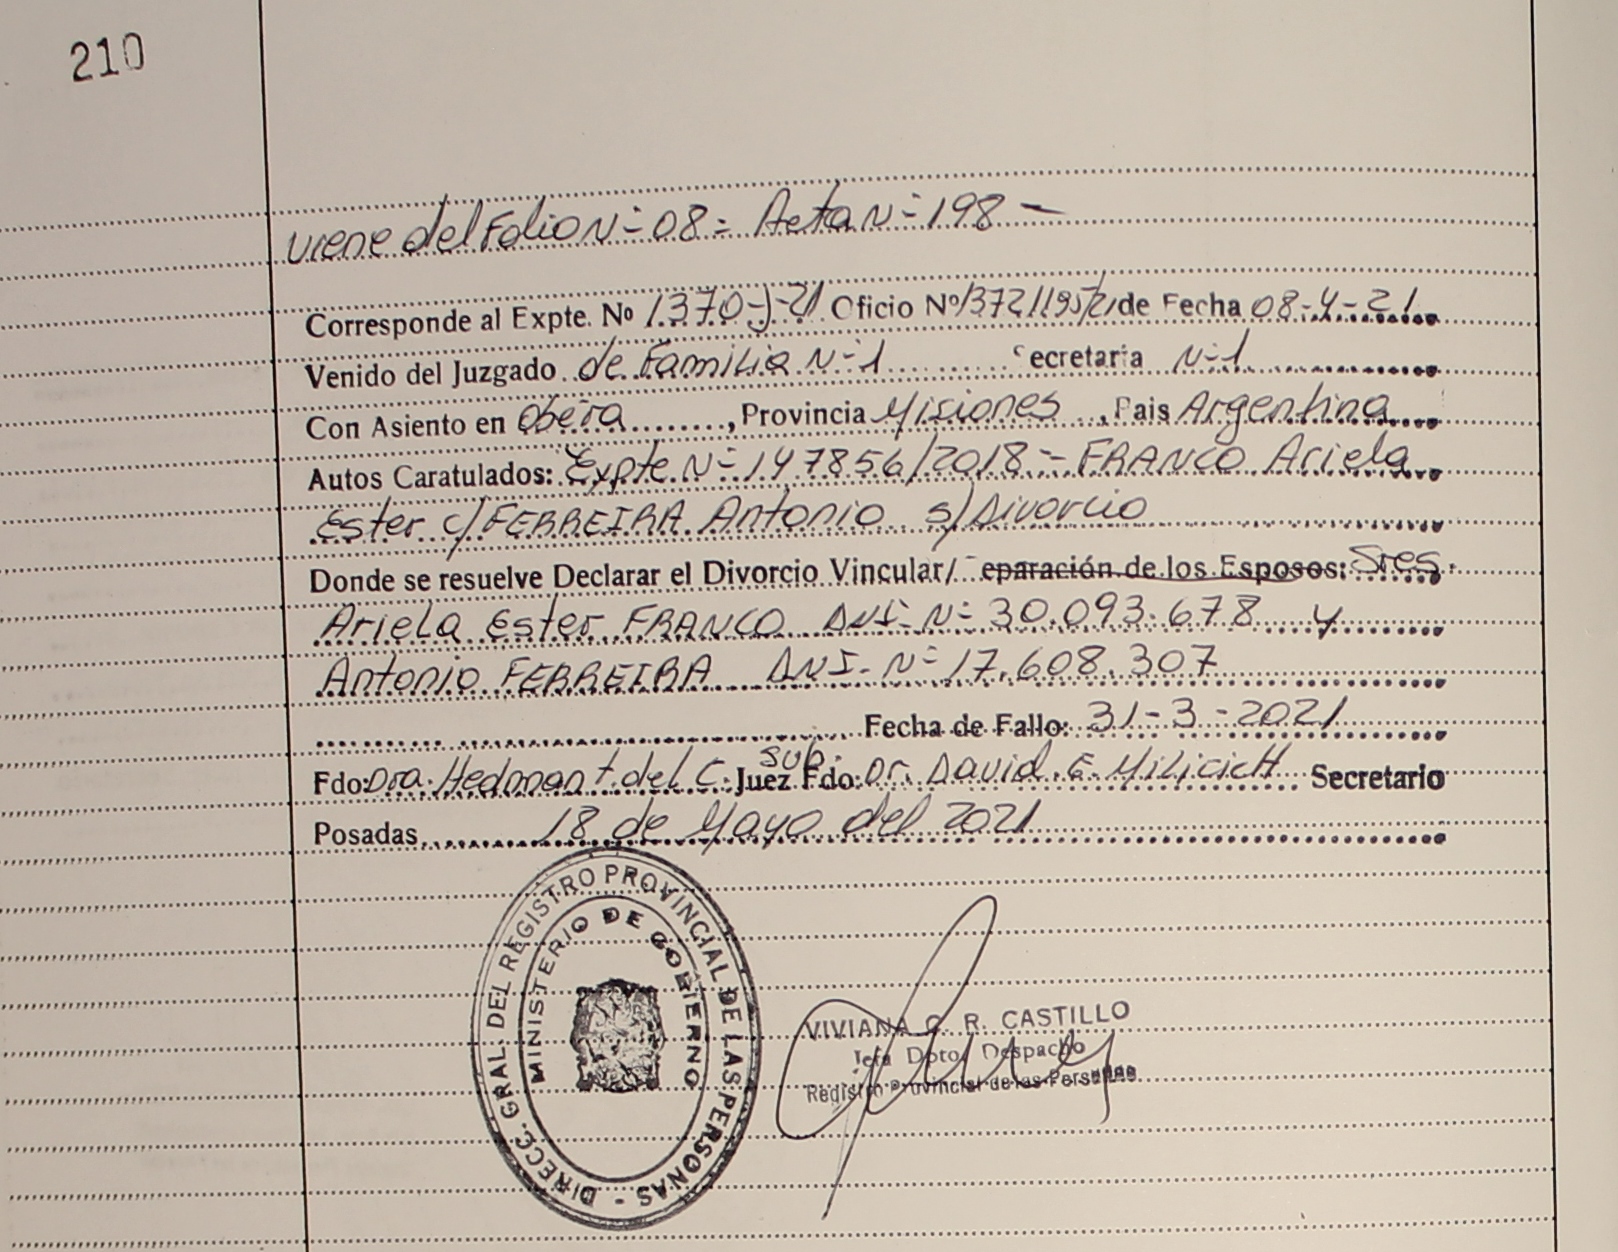 210
viene del Folio N= 08 = Acta N= 198 -
Corresponde al Expte. Nº 1370-J-21 Oficio Nº 1372/195/21 de Fecha 08-4-21
Venido del Juzgado de Familia N=1 ecretaria N=1
Con Asiento en Oberá, Provincia Misiones, Pais Argentina
Autos Caratulados: Expte N= 147856/2018 - FRANCO Ariela
Ester c/ FERREIRA Antonio s/ Divorcio
Donde se resuelve Declarar el Divorcio Vincular/ eparación de los Esposos: Sres.
Ariela Ester FRANCO DNI- N= 30.093.678 y
Antonio FERREIRA DNI- N= 17.608.307
Fecha de Fallo: 31-3-2021
Fdo: Dra. Hedman t. del C. Juez sub. Fdo: Dr. David E. Milicich Secretario
Posadas 18 de Mayo del 2021
DIRECC. GRAL. DEL REGISTRO PROVINCIAL DE LAS PERSONAS -
MINISTERIO DE GOBIERNO
VIVIANA C. R. CASTILLO
Jefa Dpto. Despacho
Registro Provincial de las Personas